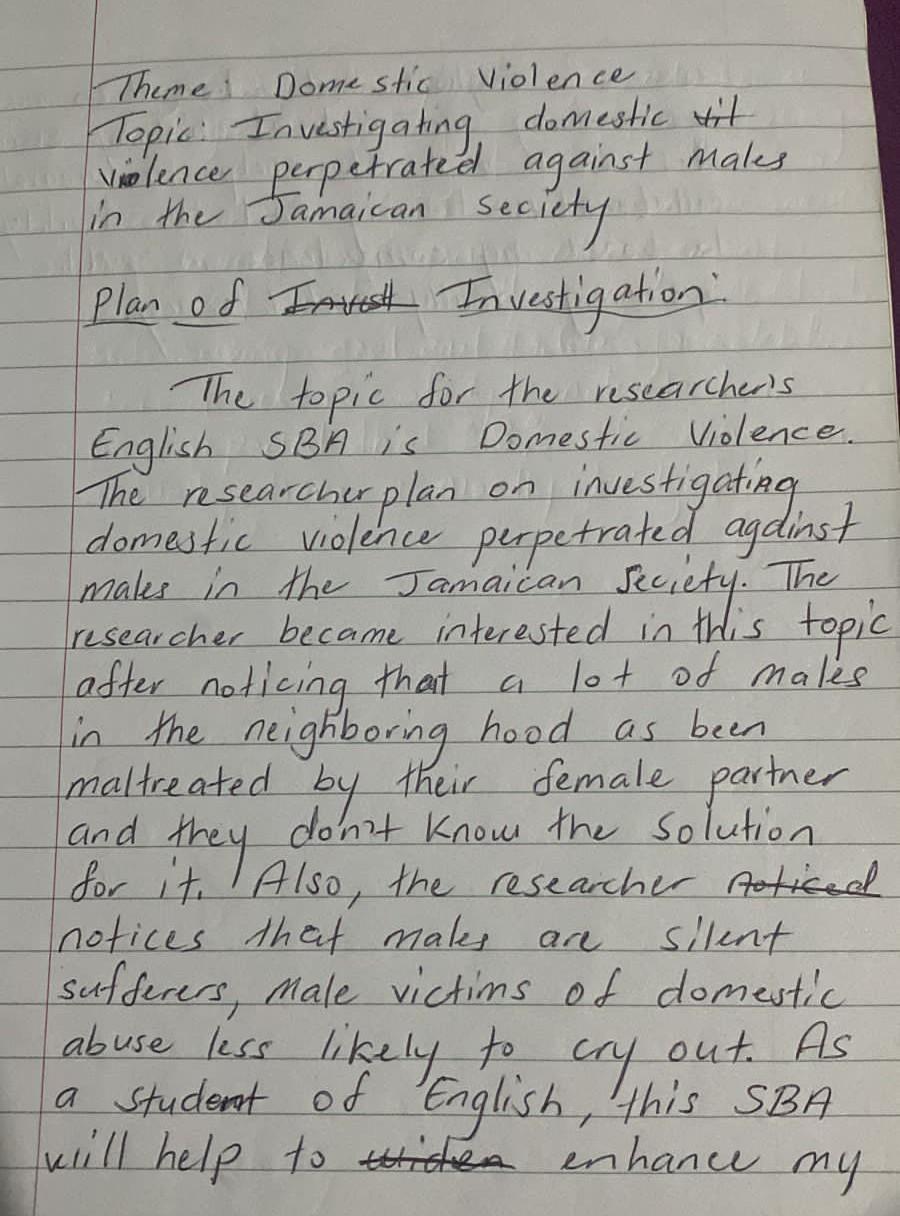 Theme: Domestic Violence
Topic: Investigating domestic vit
violence perpetrated against males
in the Jamaican Seciety
Plan of Invest Investigation:
The topic for the researcher's
English SBA is Domestic Violence.
The researcher plan on investigating
domestic violence perpetrated against
males in the Jamaican Seciety. The
researcher became interested in this topic
after noticing that a lot of males
in the neighboring hood as been
maltreated by their female partner
and they don't know the solution
for it. Also, the researcher noticed
notices that males are silent
sufferers, male victims of domestic
abuse less likely to cry out. As
a student of English, this SBA
will help to widen enhance my